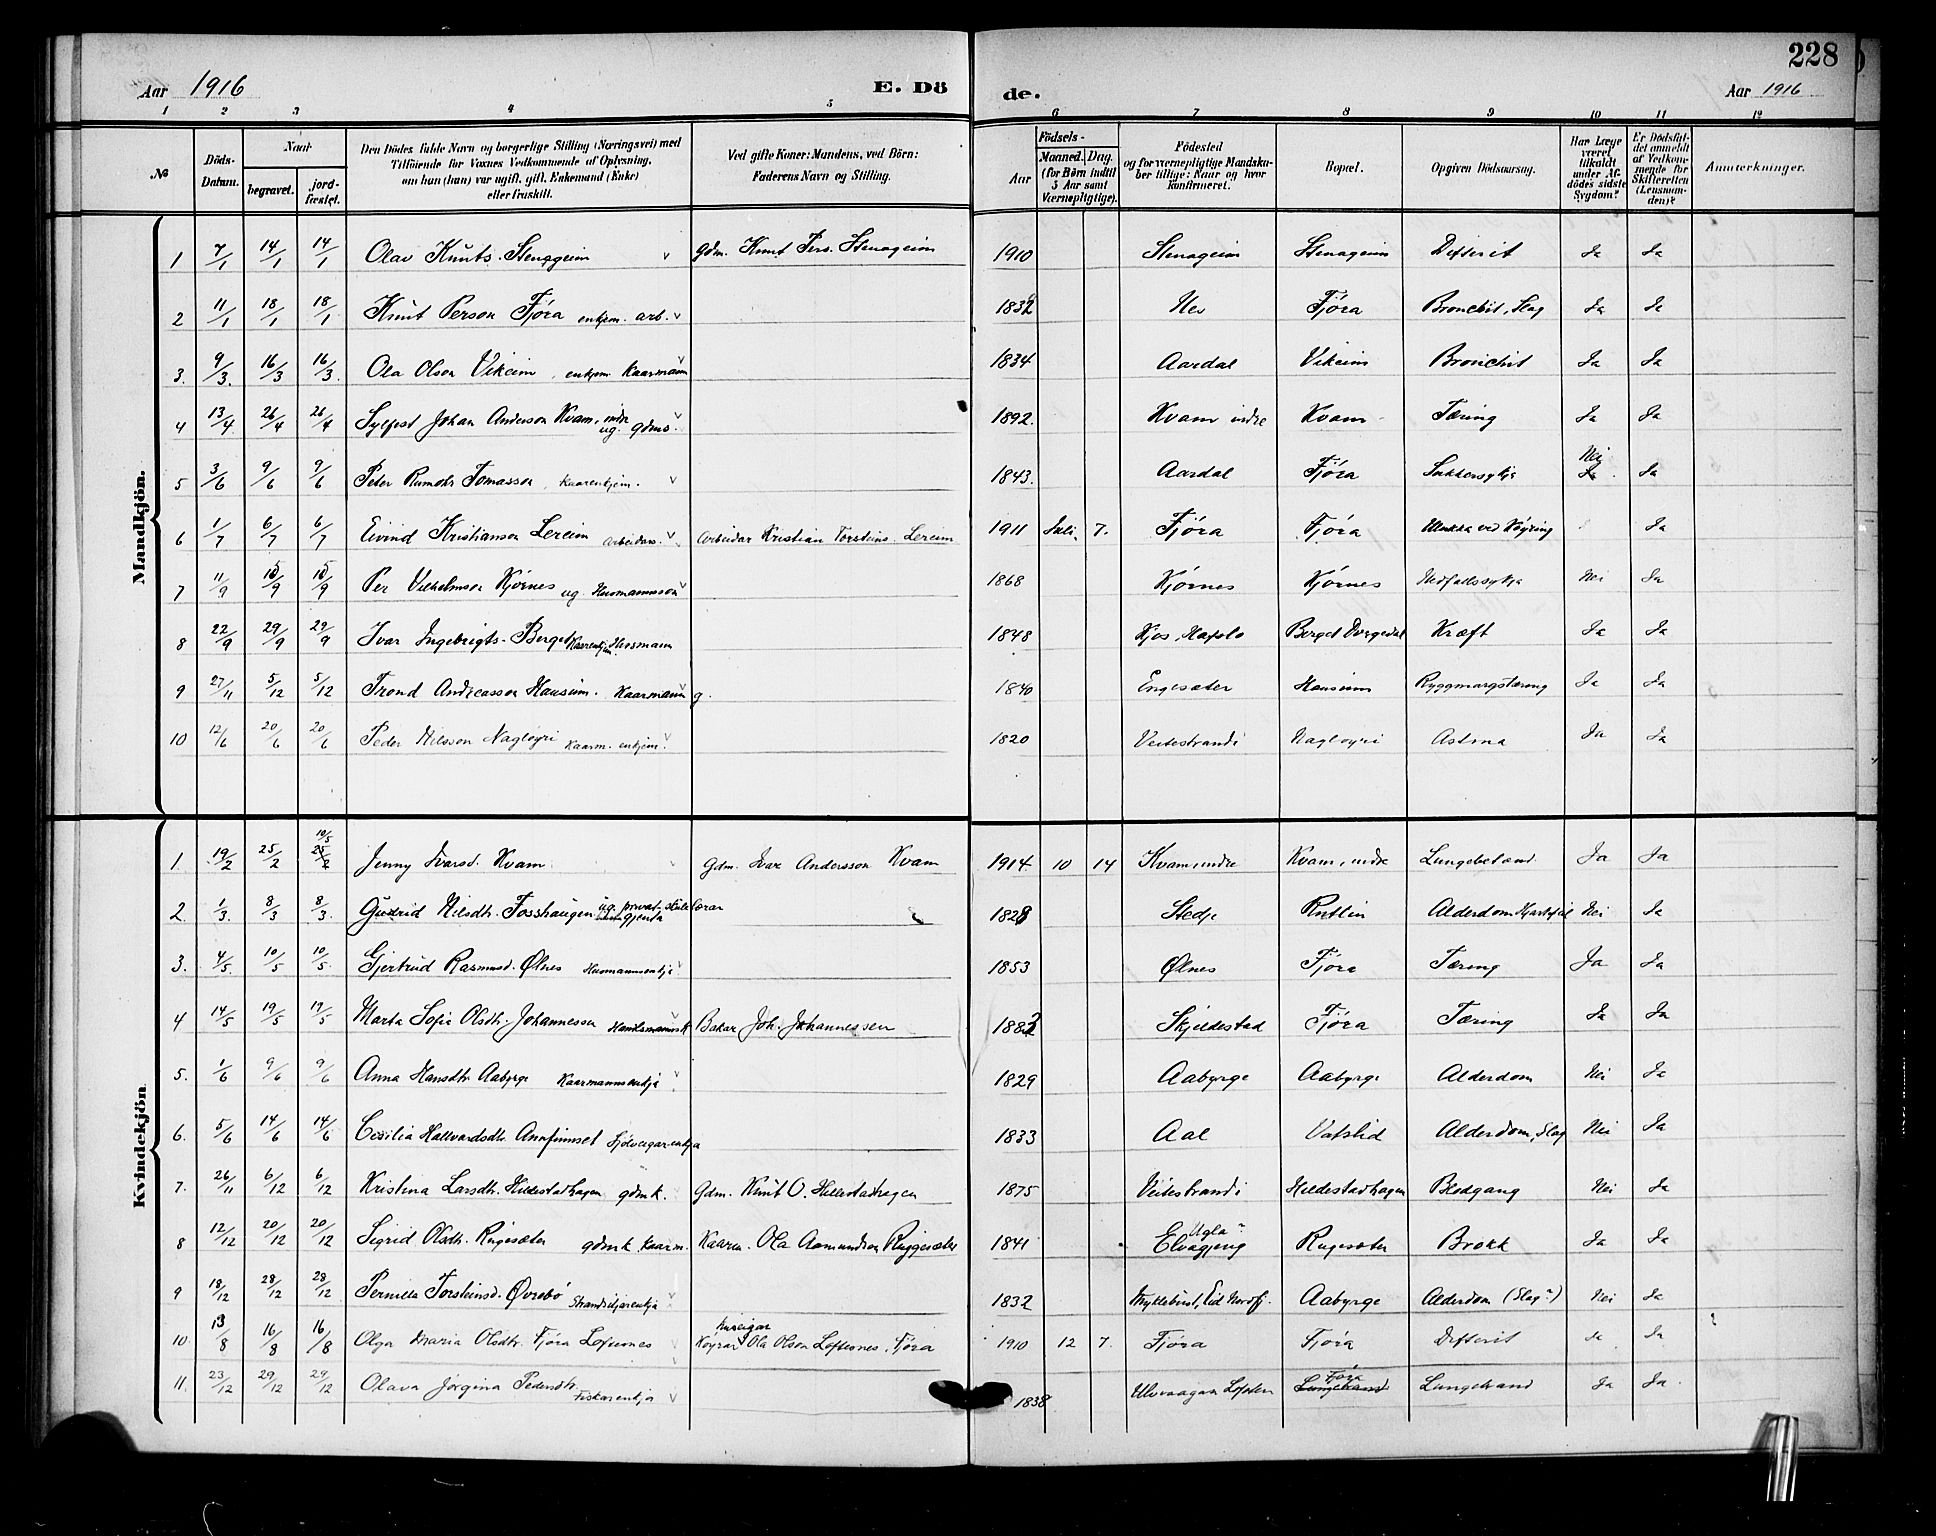 228
Aar 1916 E. Dö de. Aar 1916
1 2 3 4 5 6 7 8 9 10 11 12
№ Döds-Datum. Naar begravet. jordfæstet. Den Dödes fulde Navn og borgerlige Stilling (Næringsvei) med Tilföiende for Voxnes Vedkommende af Oplysning, om han (hun) var ugift, gift, Enkemand (Enke) eller fraskilt. Ved gifte Koner: Mandens, ved Börn: Faderens Navn og Stilling. Aar Födsels- Maaned. Dag. (for Börn indtil 5 Aar samt Værnepligtige). Födested og for værnepligtige Mandskaber tillige: Naar og hvor konfirmeret. Bopæl. Opgiven Dödsaarsag. Har Læge været tilkaldt under Afdödes sidste Sygdom? Er Dödsfaldet anmeldt af Vedkommende for Skifteretten (Lensmanden)? Anmærkninger.
Mandkjön.
1 7/1 14/1 14/1 Olav Knuts. Stenageim v Gdm. Knut Pers. Stenageim 1910 Stenageim Stenageim Difterit Ja Ja
2 11/1 18/1 18/1 Knut Person Fjóra enkjem. arb. v 1832 Nes Fjóra Bronchit, Slag Ja Ja
3. 9/3. 16/3 16/3. Ola Olson Vikeim, enkjem. Kaarmann v 1834 Aardal Vikeim Bronchit Ja Ja
4 13/4. 26/4 26/4 Sylfest Johan Anderson Kvam, indre ug. gdms. v 1892. Kvam indre Kvam Tæring Ja Ja
5 3/6 9/6 9/6 Peter Rumohr Tomasson, Kaarenkjem. v 1843. Aardal Fjóra Sukkersykja Nei Ja. Ja
6 1/7 6/7 6/7 Eivind Kristianson Lereim arbeidars. v Arbeidar Kristian Torsteins. Lereim 1911 Juli. 7. Fjóra Fjóra Ulukka ved Köyring Ja
7 11/9 15/9 15/9 Per Vilhelmson Kjörnes ug. Husmannsson v 1868 Kjörnes Kjörnes Nedfallssykja Nei Ja
8 22/9 29/9 29/9 Ivar Ingebrigts. Berget Kaarenkjem. Husmann 1848 Kjos, Hafslo Berget Dyrgedal Kræft Ja Ja
9 27/11 5/12 5/12 Trond Andreasson Hauseim. Kaarmann g. 1840 Engesæter Hauseim Ryggmargstæring Ja Ja
10 12/6 20/6 20/6 Peder Nilsson Nagløyri Kaarm. enkjem. v 1820 Veitestrandi Nagløyri Astma Ja Ja
Kvindekjön
1 19/2 25/2 10/5 25/2 Jenny Ivarsd. Kvam v Gdm. Ivar Andersson Kvam 1914. 10 14 Kvam indre Kvam, indre Lungebetænd. Ja Ja
2 1/3. 8/3 8/3. Gudrid Nilsdtr. Fosshaugen ug. privat-skulelærar gjenta 1828 Stedje Rutlin Alderdom Hjartefeil Nei Ja
3. 4/5. 10/5 10/5. Gjertrud Rasmusd. Ølnes Husmannsenkja v 1853 Ølnes Fjóra Tæring Ja Ja
4 14/5 19/5 19/5 Marta Sofie Olsdtr. Johannessen Handsmannsk. v Bakar Joh. Johannessen 1882 Skjeldestad Fjóra Tæring Ja Ja
5. 1/6 9/6 9/6 Anna Hansdtr. Aabyrge Kaarmannsenkja v 1829 Aabyrge Aabyrge Alderdom Nei Ja
6. 5/6 14/6 14/6 Cecilia Hallvardsdtr. Annfinnset Sjølveigarenkja 1833 Aal Vatslid Alderdom, Slag Nei Ja
7. 26/11 6/12 6/12 Kristina Larsdtr. Hildestadhagen gdmk. Gdm. Knut O. Hillestadhagen 1875 Veitestrandi Hildestadhagen Blodgang Nei Ja
8 12/12 20/12 20/12 Sigrid Olsdtr. Rugesæter gdmk Kaarm. Kaarm. Ola Aamundson Ruggesæter 1841 Ugla? Elvagjeng Rugesæter Brokk Ja Ja
9 18/12 28/12 28/12 Pernilla Torsteinsd. Øvrebø Strandsitjarenkja v 1832 Myklebust, Eid Nordfj. Aabyrge Alderdom (Slag?) Nei Ja
10. 13/8 16/8 16/8 Olga Maria Olsdtr. Fjóra Loftesnes v Huseigar Køyrar Ola Olson Loftesnes, Fjóra 1910 12 7. Fjóra Fjóra Difterit Ja Ja
11. 23/12 29/12 29/12 Olava Jørgina Pedersdtr. Fiskarenkja v 1838 Ulvvaagan Lofoten Fjóra Lungebrand Lungebrand Ja Ja.